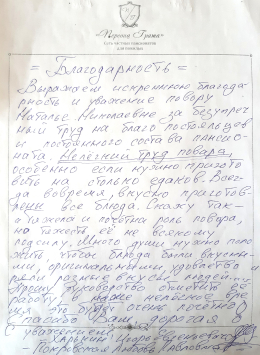 = Благодарность =
Выражаем искреннюю благода-
рность и уважение повору
Наталье Николаевне за безупреч
ный труд на благо постояльцев
и постоянного состава пансио-
ната. Нелегкий труд повара,
особенно если нужно пригото
вить на столько едаков. Всег-
да вовремя, вкусно приготов-
лены все блюда. Скажу так-
а тяжела и почетна роль повара,
на тяжесть её не всякому
подсилу. Много души нужно поло
жить, чтобы блюда были вкусны-
ми, оригинальными
разные вкусы людей.
Прошу руководство отметить её
работу в наше нелегкое вре
мя это будет очень
Спасибо Вам дорогая
С уважением
Покровская Любовь Павловна